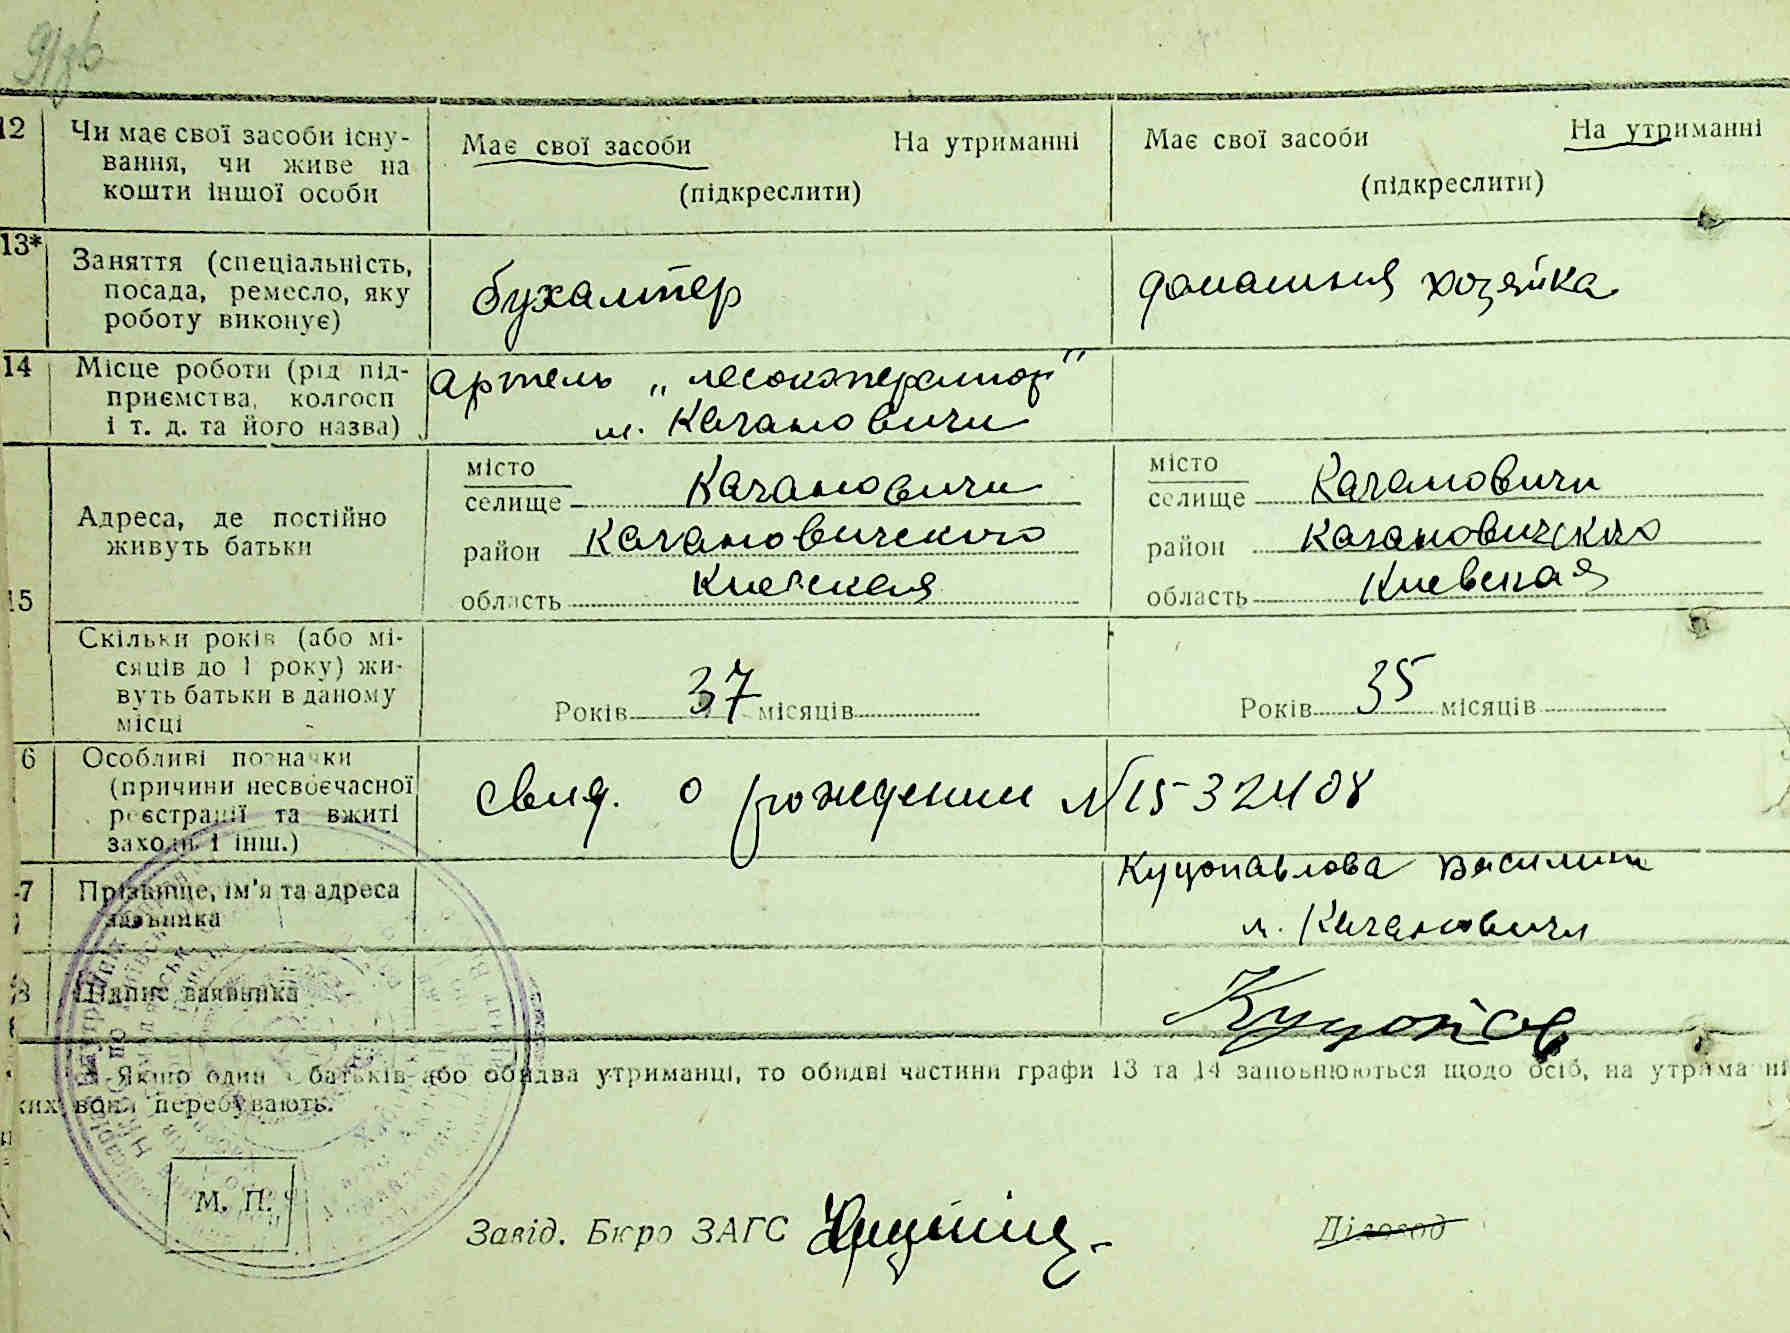 12 Чи має свої засоби існу-
вання, чи живе на
кошти іншої особи
Має свої засоби На утриманні
(підкреслити)
Має свої засоби На утриманні
(підкреслити)
13* Заняття (спеціальність,
посада, ремесло, яку
роботу виконує)
бухалтер
домашняя хозяйка
14 Місце роботи (рід під-
приємства, колгосп
і т. д. та його назва)
артель „лесокоператор"
м. Качановичи
15 Адреса, де постійно
живуть батьки
місто
селище Качановичи
район Качановичского
область Киевская
місто
селище Качановичи
район Качановичского
область Киевская
Скільки років (або мі-
сяців до 1 року) жи-
вуть батьки в даному
місці
Років 37 місяців
Років 35 місяців
6 Особливі позначки
(причини несвоєчасної
реєстрації та вжиті
заходи і інш.)
свид. о рождении №15-32408
7 Прізвище, ім'я та адреса
заявника
Куцопавлова
м. Качановичи
8 Підпис заявника
Якщо один з батьків або обидва утриманці, то обидві частини графи 13 та 14 заповнюються щодо осіб, на утриманні
яких вони перебувають.
М. П.
Завід. Бюро ЗАГС
Діловод